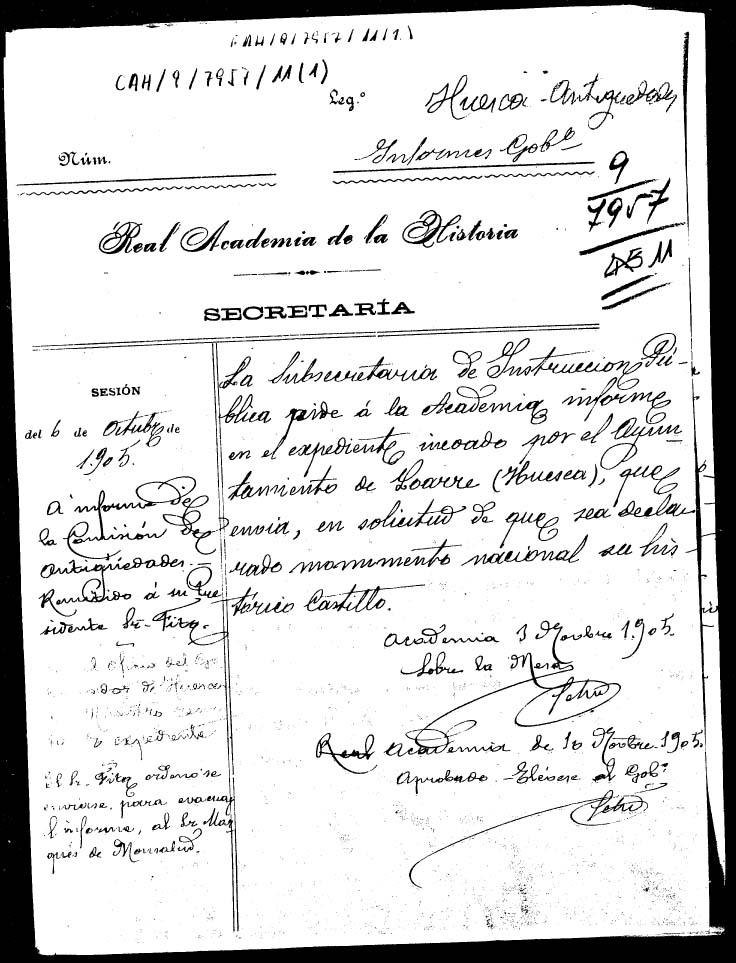 CAH/9/7957/11(1)
CAH/9/7957/11(1)
Leg.º Huesca - Antiguedades
Núm. Informes Gobº
9
7957
11
Real Academia de la Historia
SECRETARÍA
SESIÓN
del 6 de Octubre de
1.905.
A informe de
la Comisión de
Antigüedades.
Remitido á su Pre
sidente Sr. Fita.
el oficio del Go
ador de Huesca
expediente
El Sr. Fita ordenó se
enviase, para evacuar
l informe, al Sr. Mar
qués de Monsalud.
La Subsecretaria de Instruccion Pú-
blica pide á la Academia informe
en el expediente incoado por el Ayun
tamiento de Loarre (Huesca), que
envia, en solicitud de que sea decla
rado monumento nacional su his-
tórico Castillo.
Academia 3 Novbre 1.905.
Sobre la Mesa
Real Academia de 10 Novbre 1905.
Aprobado - Elévese al Gobº